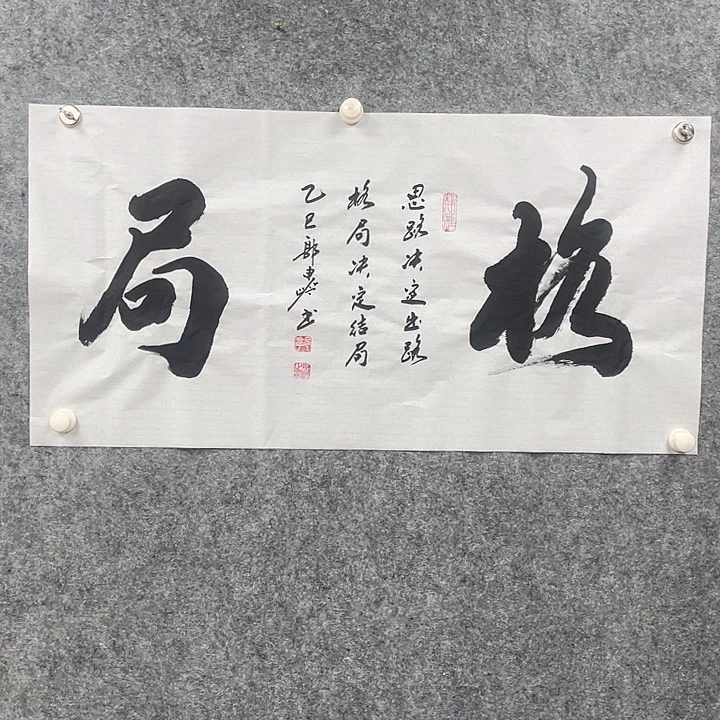 格
思路决定出路
格局决定结局
乙巳郭
书
局